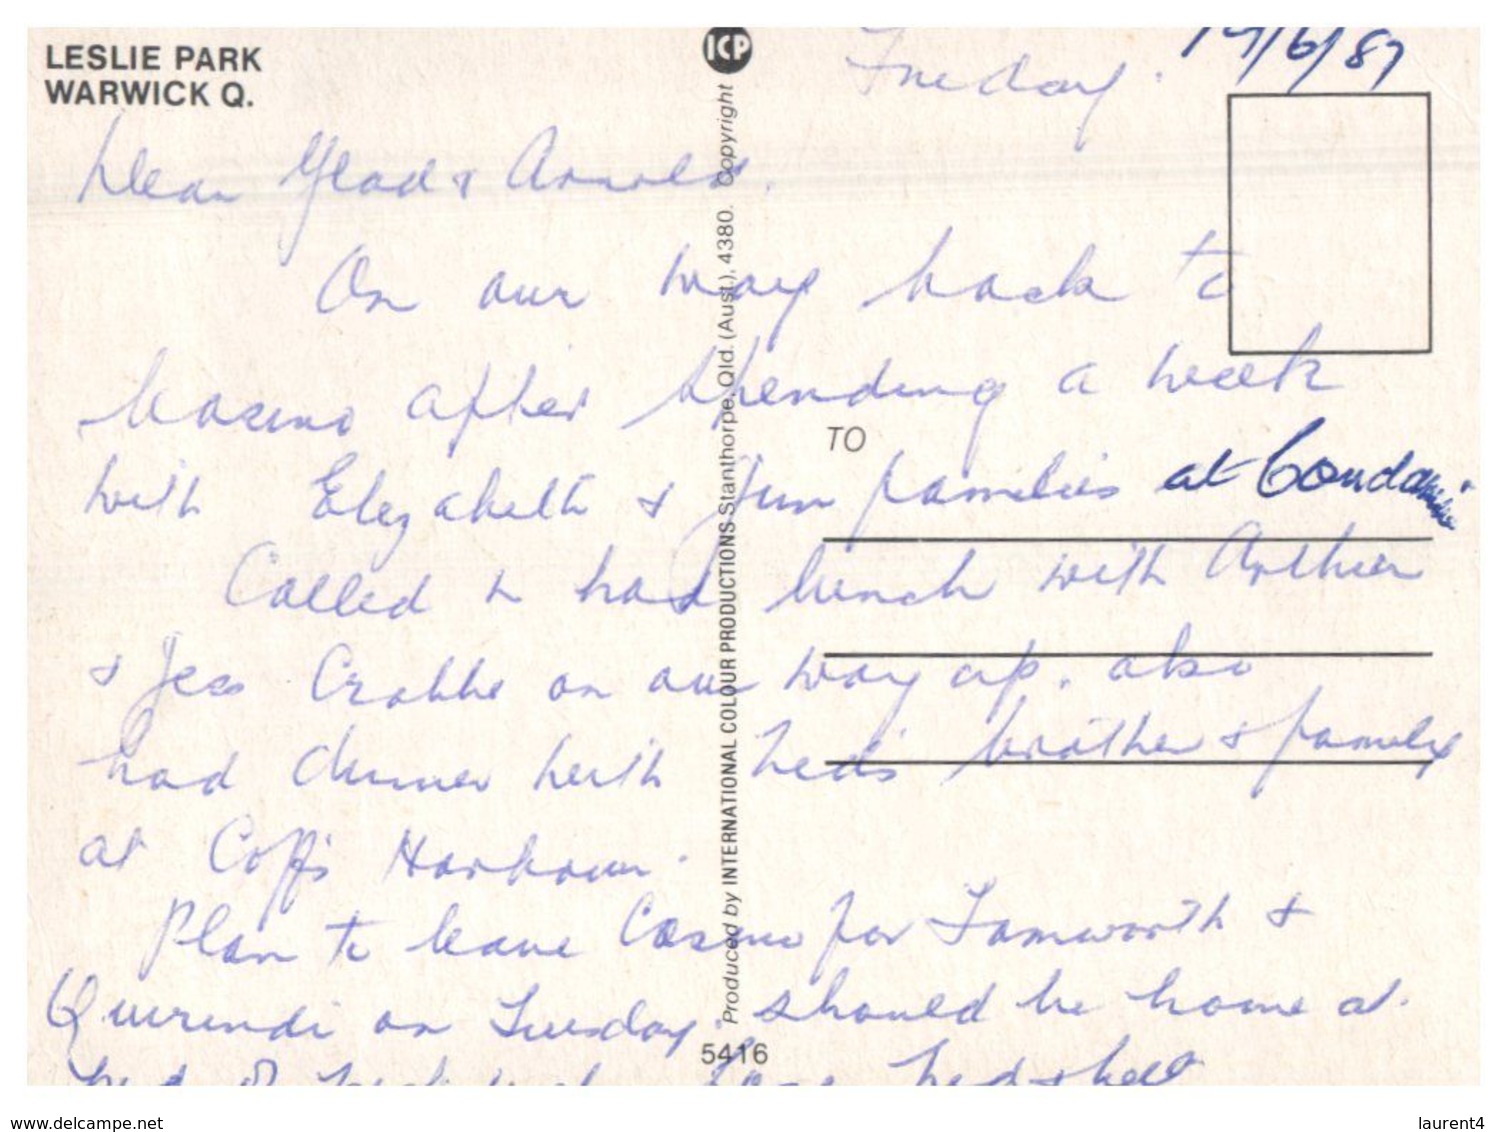 LESLIE PARK
WARWICK Q.
ICP
Friday. 19/6/87
Dear Glad & Arnold.
On our way back to
Casino after spending a week
with Elizabeth & Jim families at Goondawindi
Called & had lunch with Arthur
& Jess Crabbe on our way up. also
had dinner with Ned's brother & family
at Coffs Harbour.
Plan to leave Casino for Tamworth &
Quirindi on Tuesday. should be home at
TO
Produced by INTERNATIONAL COLOUR PRODUCTIONS Stanthorpe, Qld. (Aust.), 4380. Copyright
5416
www.delcampe.net
laurent4